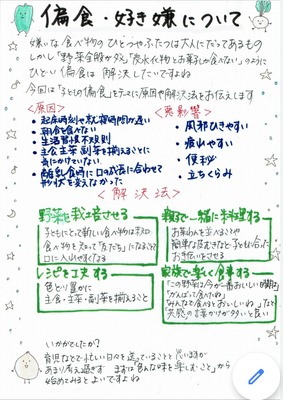 偏食・好き嫌について
嫌いな食べ物のひとつやふたつは大人にだってあるもの
しかし「野菜全般がダメ」「炭水化物とお菓子しか食べない」のように
ひどい偏食は解決したいですよね
今回は「子どもの偏食」をテーマに原因や解決法をお伝えします
<原因>
・起床時刻や就寝時間が遅い
・朝食を食べない
・生活習慣不規則
・主食主菜副菜を揃えることに
気にかけていない
・離乳食時に口の成長に合わせて
形状を変えなかった
<悪影響>
・風邪ひきやすい
・疲れやすい
・便秘
・立ちくらみ
<解決法>
野菜を栽培させる
子どもにとって新しい食べ物は未知
食べ物を知って「友だち」になることで
口に入りやすくなる
親子で一緒に料理する
お米の進み込みや
簡単な包むきなど子どもに合った
お手伝いをさせる
レシピを工夫する
色どり豊かに
主食・主菜・副菜を揃えること
家族で楽しく食事する
「この野菜は今が一番おいしい時期」
「がんばって食べたね」
「みんなで食べるとおいしいね」など
共感の言葉かけが多いと良い
いかがでしたか?
育児などで忙しい日々を送っていることと思いますが
あまり考え過ぎず まずは「色んな味を楽しむこと」から
始めてみるとよいですよね